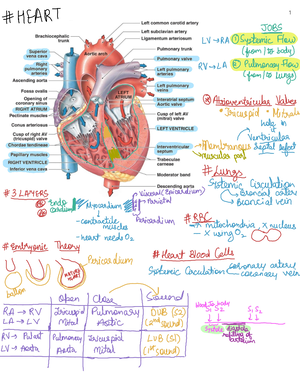 #HEART
1
Left common carotid artery
Left subclavian artery
Ligamentum arteriosum
Pulmonary trunk
Pulmonary valve
Left pulmonary arteries
LEFT ATRIUM
Left pulmonary veins
Interatrial septum
Aortic valve
Cusp of left AV (mitral) valve
LEFT VENTRICLE
Interventricular septum
Trabeculae carneae
Moderator band
Descending aorta
Brachiocephalic trunk
Aortic arch
Superior vena cava
Right pulmonary arteries
Ascending aorta
Fossa ovalis
Opening of coronary sinus
RIGHT ATRIUM
Pectinate muscles
Conus arteriosus
Cusp of right AV (tricuspid) valve
Chordae tendineae
Papillary muscles
RIGHT VENTRICLE
Inferior vena cava
JOBS
LV→RA ① Systemic Flow
(from/to body)
RV→LA ② Pulmonary Flow
(from/to lungs)
Atrioventricular Valves
*Tricuspid *Mitral
hole in
Ventricular
Septal Defect
*Membranous
*muscular part
#Lungs
Systemic Circulation
Broncial artery
Broncial vein
#3 LAYERS
Endo
cardium
Myocardium
→contractile
muscles
→heart needs O₂
Visceral (Epicardium)
Parietal
Pericardium
#RBC
x mitochondria, x nucleus
- x using O₂
#Embryonic Theory
Pericardium
balloon
#Heart Blood Cells
Systemic Circulation
coronary artery
coronary vein
Open
Close
Sound
RA → RV
LA → LV
Tricuspid
Mital
Pulmonary
Aortic
DUB (S2)
(2nd sound)
RV → Pul art
LV → Aorta
Pulmonary
Aorta
Tricuspid
Mital
LUB (S1)
(1st sound)
S₁ S₂
S₁ S₂
Systole
diastole